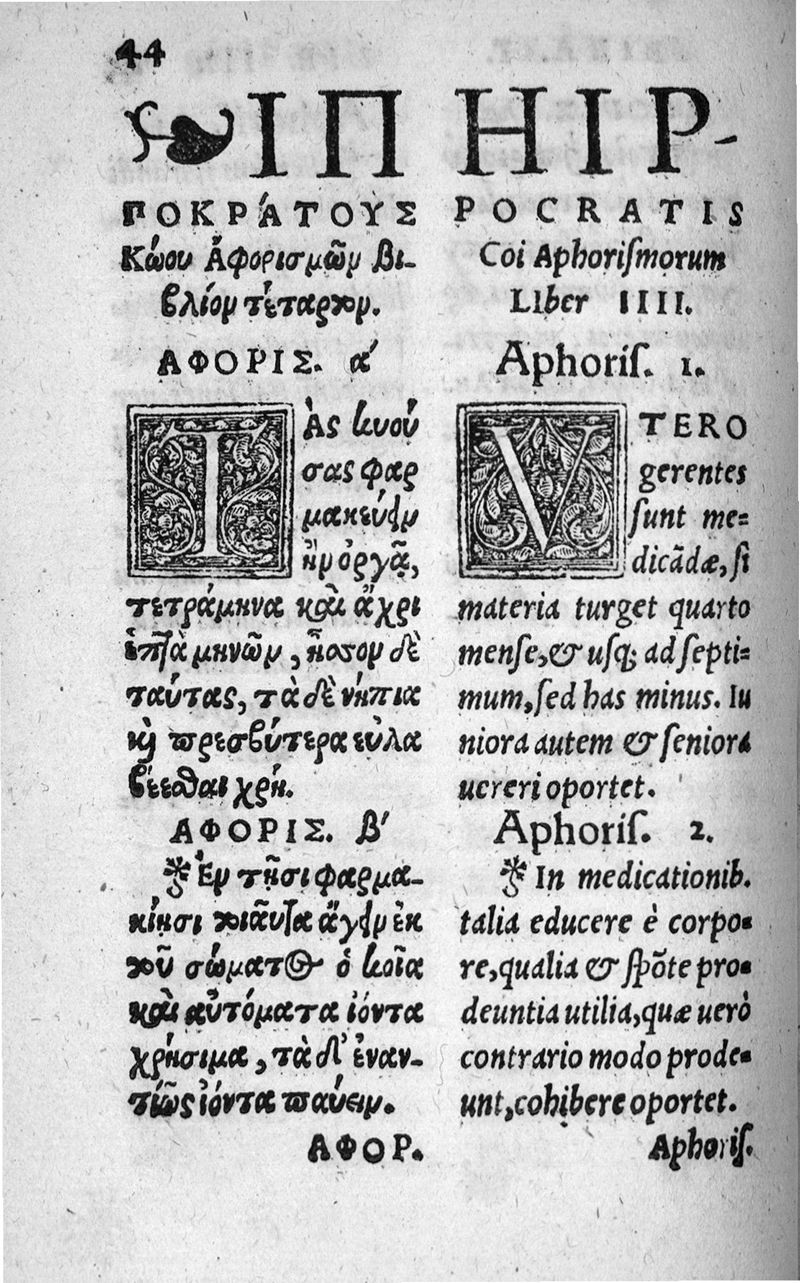 44
ΙΠ
ΠΟΚΡΆΤΟΥΣ
Κώου Ἀφορισμῶν βι-
βλίον τέταρτον.
ΑΦΟΡΙΣ. α´
ΤᾺς κυού
σας φαρ
μακεύειν
ἢν ὀργᾷ,
τετράμηνα καὶ ἄχρι
ἑπτὰ μηνῶν, ἧσσον δὲ
ταύτας, τὰ δὲ νήπια
καὶ πρεσβύτερα εὐλα
βέεσθαι χρή.
ΑΦΟΡΙΣ. β´
Ἐν τῇσι φαρμα-
κίῃσι τοιαῦτα ἄγειν ἐκ
τοῦ σώματος ὁκοῖα
καὶ αὐτόματα ἰόντα
χρήσιμα, τὰ δ' ἐναν-
τίως ἰόντα παύειν.
ΑΦΟΡ.
HIP-
POCRATIS
Coi Aphoriſmorum
Liber IIII.
Aphoriſ. 1.
VTERO
gerentes
ſunt me=
dicãdæ, ſi
materia turget quarto
menſe, & uſq; ad ſepti=
mum, ſed has minus. Iu
niora autem & ſeniora
uereri oportet.
Aphoriſ. 2.
In medicationib.
talia educere è corpo-
re, qualia & ſpõte pro-
deuntia utilia, quæ uerò
contrario modo prode-
unt, cohibere oportet.
Aphoriſ.